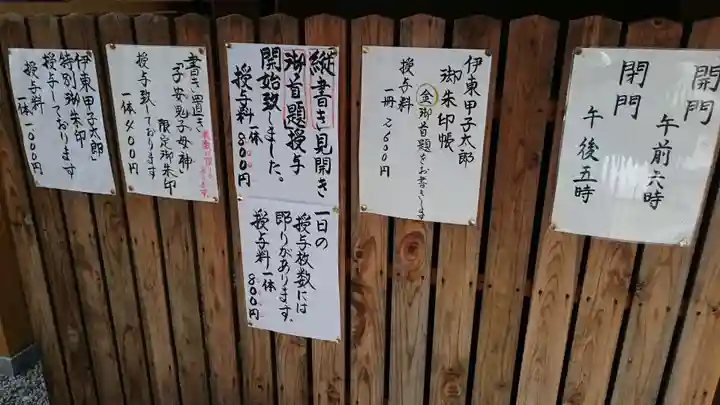 開門
午前六時
閉門
午後五時
伊東甲子太郎
御朱印帳
金御首題をお書きします
授与料
一冊 2600円
「縦書き」見開き
御首題授与
開始致しました。
授与料 一体 800円
一日の
授与枚数には
限りがあります。
授与料 一体
800円
書き置き
「子安鬼子母神」
限定御朱印
授与致しております
一体 400円
伊東甲子太郎
特別御朱印
授与しております
授与料
一体 1000円